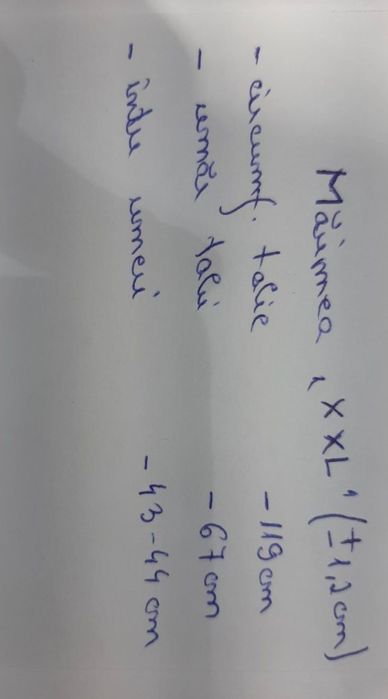 Mărimea „XXL" (±1,2cm)
- circumf. talie - 119cm
- umăr talie - 67cm
- între umeri - 43-44cm